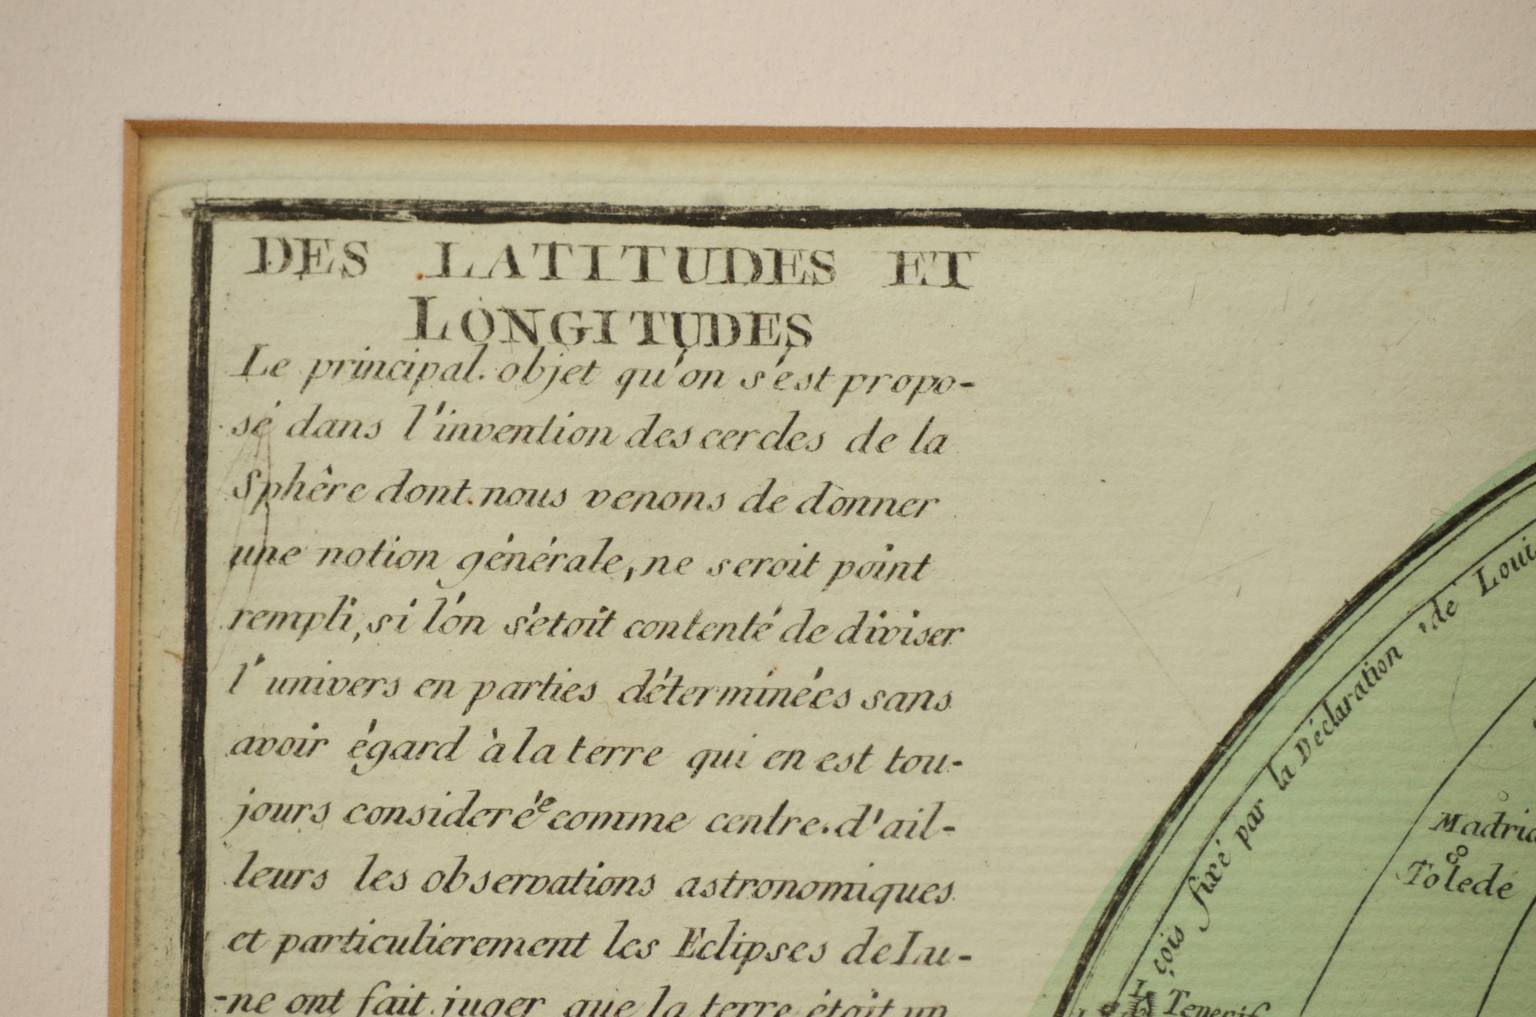 DES LATITUDES ET
LONGITUDES
Le principal objet qu'on s'est propo-
sé dans l'invention des cercles de la
Sphêre dont nous venons de donner
une notion générale, ne seroit point
rempli, si l'on s'etoit contenté de diviser
l'univers en parties déterminées sans
avoir égard à la terre qui en est tou-
jours consideréé comme centre. d'ail-
leurs les observations astronomiques
et particulierement les Eclipses de Lu-
-ne ont fait juger que la terre étoit un
çois fixé par la Déclaration de Loui
Madrid
Tolede
Tenerif